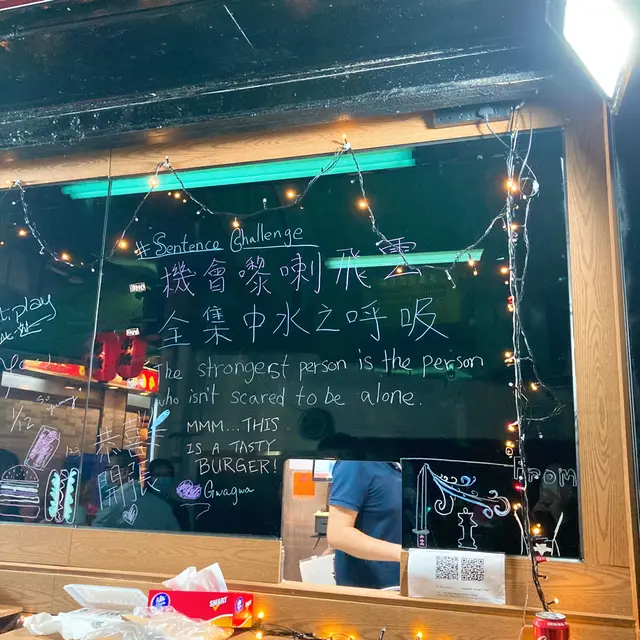 #Sentence Challenge
機會嚟喇飛雲
全集中水之呼吸
The strongest person is the person
who isn't scared to be alone.
MMM...THIS
IS A TASTY
BURGER!
Gwagwa
play
1/12
恭喜
開張
FROM
SMART